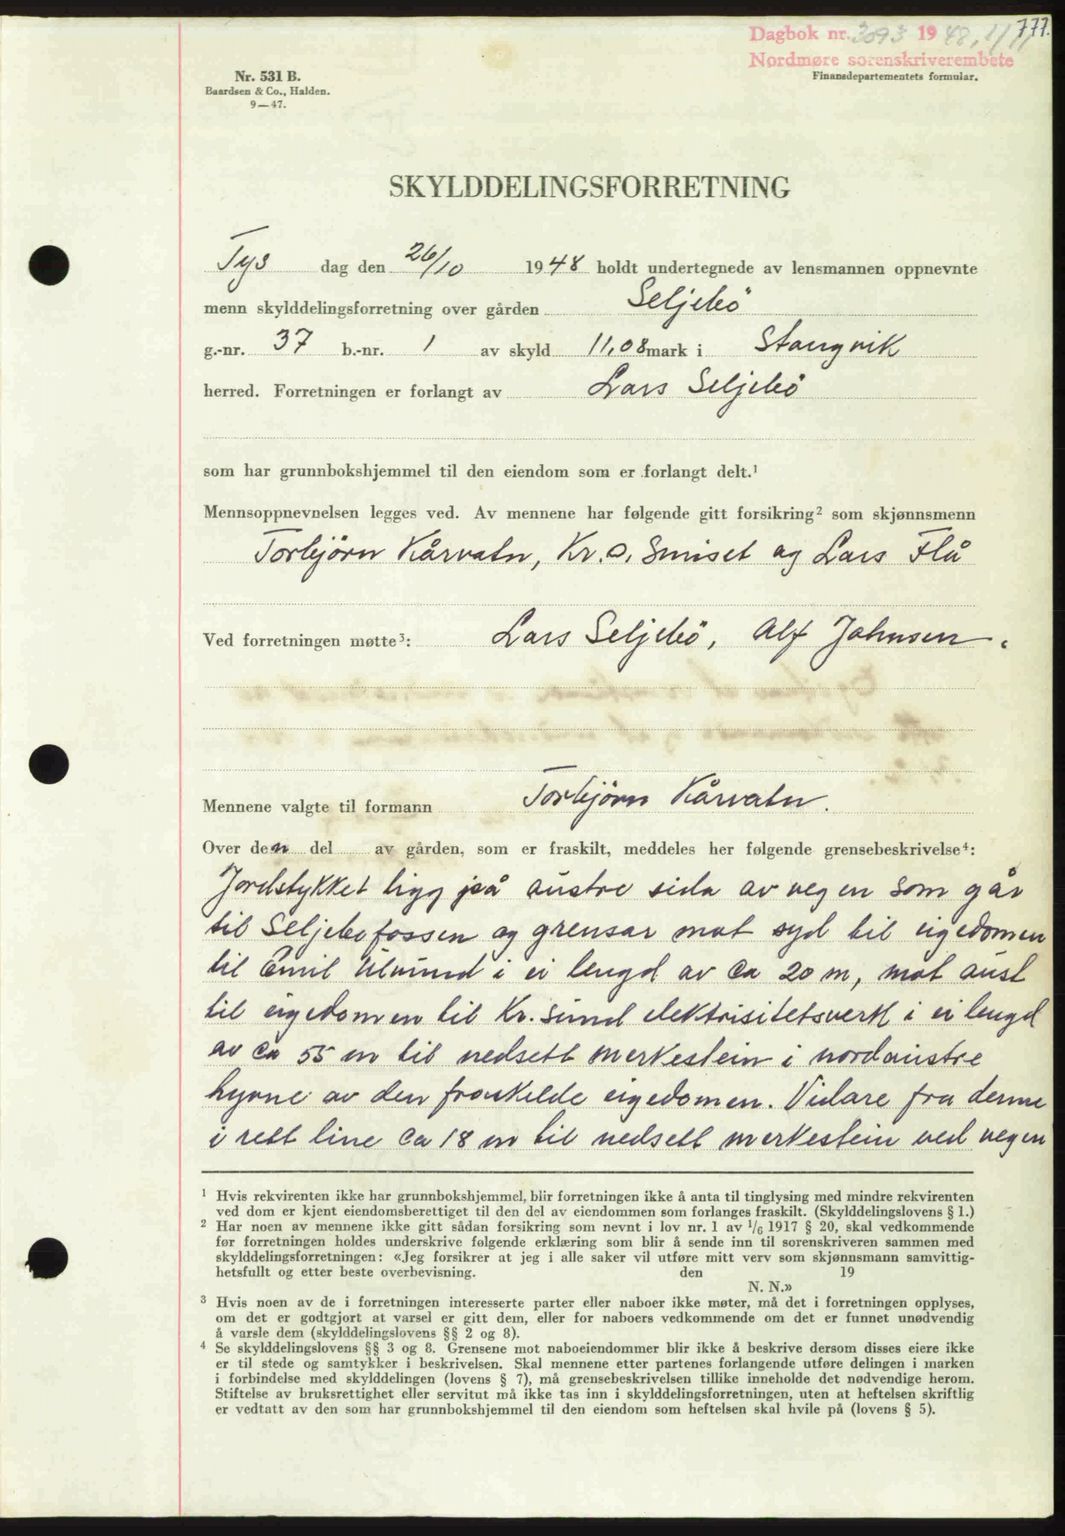 777.
Dagbok nr. 3093 1948, 1/11
Nordmøre sorenskriverembete
Nr. 531 B.
Baardsen & Co., Halden.
9—47.
Finansdepartementets formular.
SKYLDDELINGSFORRETNING
Tys dag den 26/10 1948 holdt undertegnede av lensmannen oppnevnte
menn skylddelingsforretning over gården Seljebö
g.-nr. 37 b.-nr. 1 av skyld 11,08 mark i Stangvik
herred. Forretningen er forlangt av Lars Seljebö
som har grunnbokshjemmel til den eiendom som er forlangt delt.¹
Mennsoppnevnelsen legges ved. Av mennene har følgende gitt forsikring² som skjønnsmenn
Torbjörn Kårvatn, Kr. O. Smiset og Lars Flå
Ved forretningen møtte³: Lars Seljebö, Alf Johnsen.
Mennene valgte til formann Torbjörn Kårvatn.
Over den del av gården, som er fraskilt, meddeles her følgende grensebeskrivelse⁴:
Jordstykket ligg på austre sida av vegen som går
til Seljebøfossen og grensar mot syd til eigedomen
til Emil Ulvund i ei lengd av ca 20 m, mot aust
til eigedomen til Kr.sund elektrisitetsverk i ei lengd
av ca 55 m til nedsett merkestein i nordaustre
hyrne av den fraskilde eigedomen. Vidare fra denne
i rett line ca 18 m til nedsett merkestein ved vegen
¹ Hvis rekvirenten ikke har grunnbokshjemmel, blir forretningen ikke å anta til tinglysing med mindre rekvirenten
ved dom er kjent eiendomsberettiget til den del av eiendommen som forlanges fraskilt. (Skylddelingslovens § 1.)
² Har noen av mennene ikke gitt sådan forsikring som nevnt i lov nr. 1 av 1/6 1917 § 20, skal vedkommende
før forretningen holdes underskrive følgende erklæring som blir å sende inn til sorenskriveren sammen med
skylddelingsforretningen: «Jeg forsikrer at jeg i alle saker vil utføre mitt verv som skjønnsmann samvittig-
hetsfullt og etter beste overbevisning. den 19
N. N.»
³ Hvis noen av de i forretningen interesserte parter eller naboer ikke møter, må det i forretningen opplyses,
om det er godtgjort at varsel er gitt dem, eller for naboers vedkommende om det er funnet unødvendig
å varsle dem (skylddelingslovens §§ 2 og 8).
⁴ Se skylddelingslovens §§ 3 og 8. Grensene mot naboeiendommer blir ikke å beskrive dersom disses eiere ikke
er til stede og samtykker i beskrivelsen. Skal mennene etter partenes forlangende utføre delingen i marken
i forbindelse med skylddelingen (lovens § 7), må grensebeskrivelsen tillike inneholde det nødvendige herom.
Stiftelse av bruksrettighet eller servitut må ikke tas inn i skylddelingsforretningen, uten at heftelsen skriftlig
er vedtatt av den som har grunnbokshjemmel til den eiendom som heftelsen skal hvile på (lovens § 5).